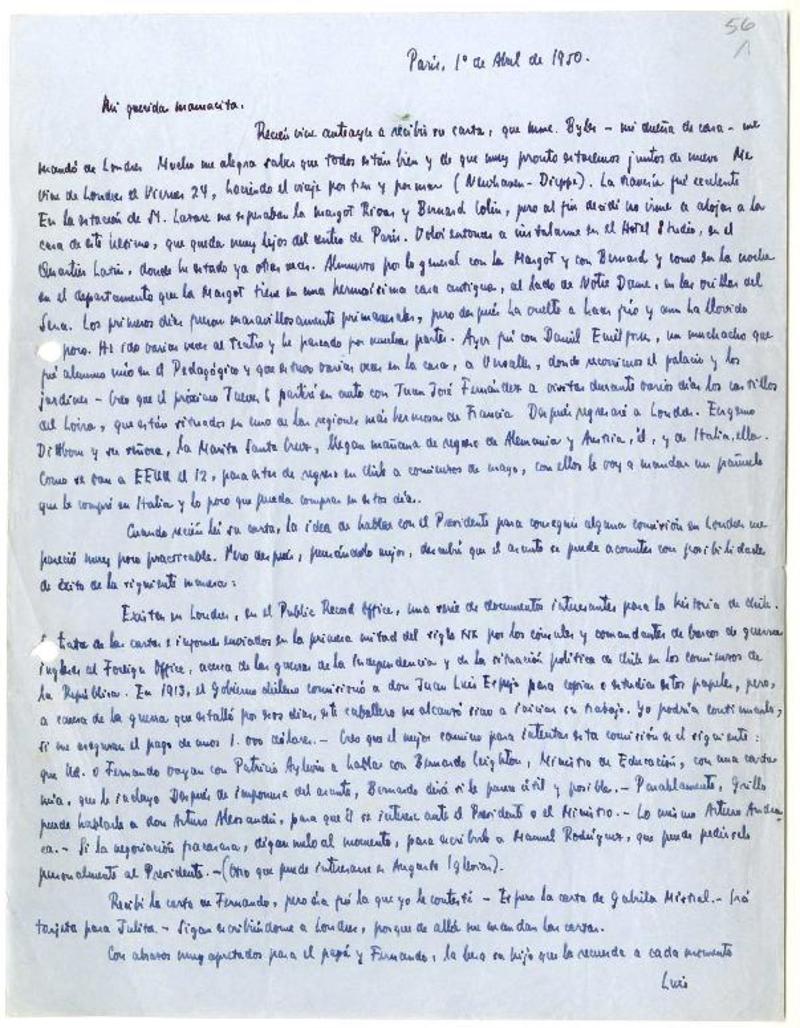 56
1
París, 1º de Abril de 1950.
Mi querida mamacita.
Recién vine anteayer a recibir su carta, que mme. Byles - mi dueña de casa - me
mandó de Londres. Mucho me alegra saber que todos están bien y de que muy pronto estaremos juntos de nuevo. Me
vine de Londres el Viernes 24, haciendo el viaje por tren y por mar (Newhaven - Dieppe). La travesía fué excelente.
En la estación de St. Lazare me esperaban la Margot Rivas y Bernard Colin, pero al fin decidí no venirme a alojar a la
casa de este último, que queda muy lejos del centro de París. Volví entonces a instalarme en el Hotel Studio, en el
Quartier Latin, donde he estado ya otras veces. Almuerzo por lo general con la Margot y con Bernard y como en la noche
en el departamento que la Margot tiene en una hermosísima casa antigua, al lado de Notre Dame, en las orillas del
Sena. Los primeros días fueron maravillosamente primaverales, pero después ha vuelto a hacer frío y aun ha llovido
poco. He ido varias veces al teatro y he paseado por muchas partes. Ayer fuí con Daniel, un muchacho que
fué alumno mío en el Pedagógico y que estuvo varias veces en la casa, a Versalles, donde recorrimos el palacio y los
jardines - Creo que el próximo Jueves 6 partiré en auto con Juan José Fernández a visitar durante varios días los castillos
del Loira, que están situados en una de las regiones más hermosas de Francia. Después regresaré a Londres. Eugenio
Dittborn y su señora, la Marita Santa Cruz, llegan mañana de regreso de Alemania y Austria, él, y de Italia, ella.
Como se van a EEUU el 12, para estar de regreso en Chile a comienzos de mayo, con ellos le voy a mandar un pañuelo
que le compré en Italia y lo poco que pueda comprar en estos días.
Cuando recién leí su carta, la idea de hablar con el Presidente para conseguir alguna comisión en Londres me
pareció muy poco practicable. Pero después, pensándolo mejor, descubrí que el asunto se puede acometer con posibilidades
de éxito de la siguiente manera:
Existen en Londres, en el Public Record Office, una serie de documentos interesantes para la historia de Chile.
Se trata de las cartas e informes enviados en la primera mitad del siglo XIX por los cónsules y comandantes de barcos de guerra
ingleses al Foreign Office, acerca de las guerras de la Independencia y de la situación política de Chile en los comienzos de
la República. En 1913, el Gobierno chileno comisionó a don Juan Luis Espejo para copiar o estudiar estos papeles, pero,
a causa de la guerra que estalló por esos días, este caballero no alcanzó sino a iniciar su trabajo. Yo podría continuarlo,
si me aseguran el pago de unos 1.000 dólares. - Creo que el mejor camino para intentar esta comisión es el siguiente:
que Ud. o Fernando vayan con Patricio Aylwin a hablar con Bernardo Leighton, Ministro de Educación, con una carta
mía, que le incluyo. Después de imponerse del asunto, Bernardo dirá si le parece útil y posible. - Paralelamente, Grillo
puede hablarle a don Arturo Alessandri, para que él se interese ante el Presidente o el Ministro. - Lo mismo Arturo
- Si la negociación fracasara, díganmelo al momento, para escribirle a Manuel Rodríguez, que puede pedírselo
personalmente al Presidente. - (Otro que puede interesarse es Augusto Iglesias).
Recibí la carta de Fernando, pero ésa fué la que yo le contesté - Espero la carta de Gabriela Mistral. - Irá
tarjeta para Julita. - Sigan escribiéndome a Londres, porque de allá me mandan las cartas.
Con abrazos muy apretados para el papá y Fernando, la besa su hijo que la recuerda a cada momento
Luis